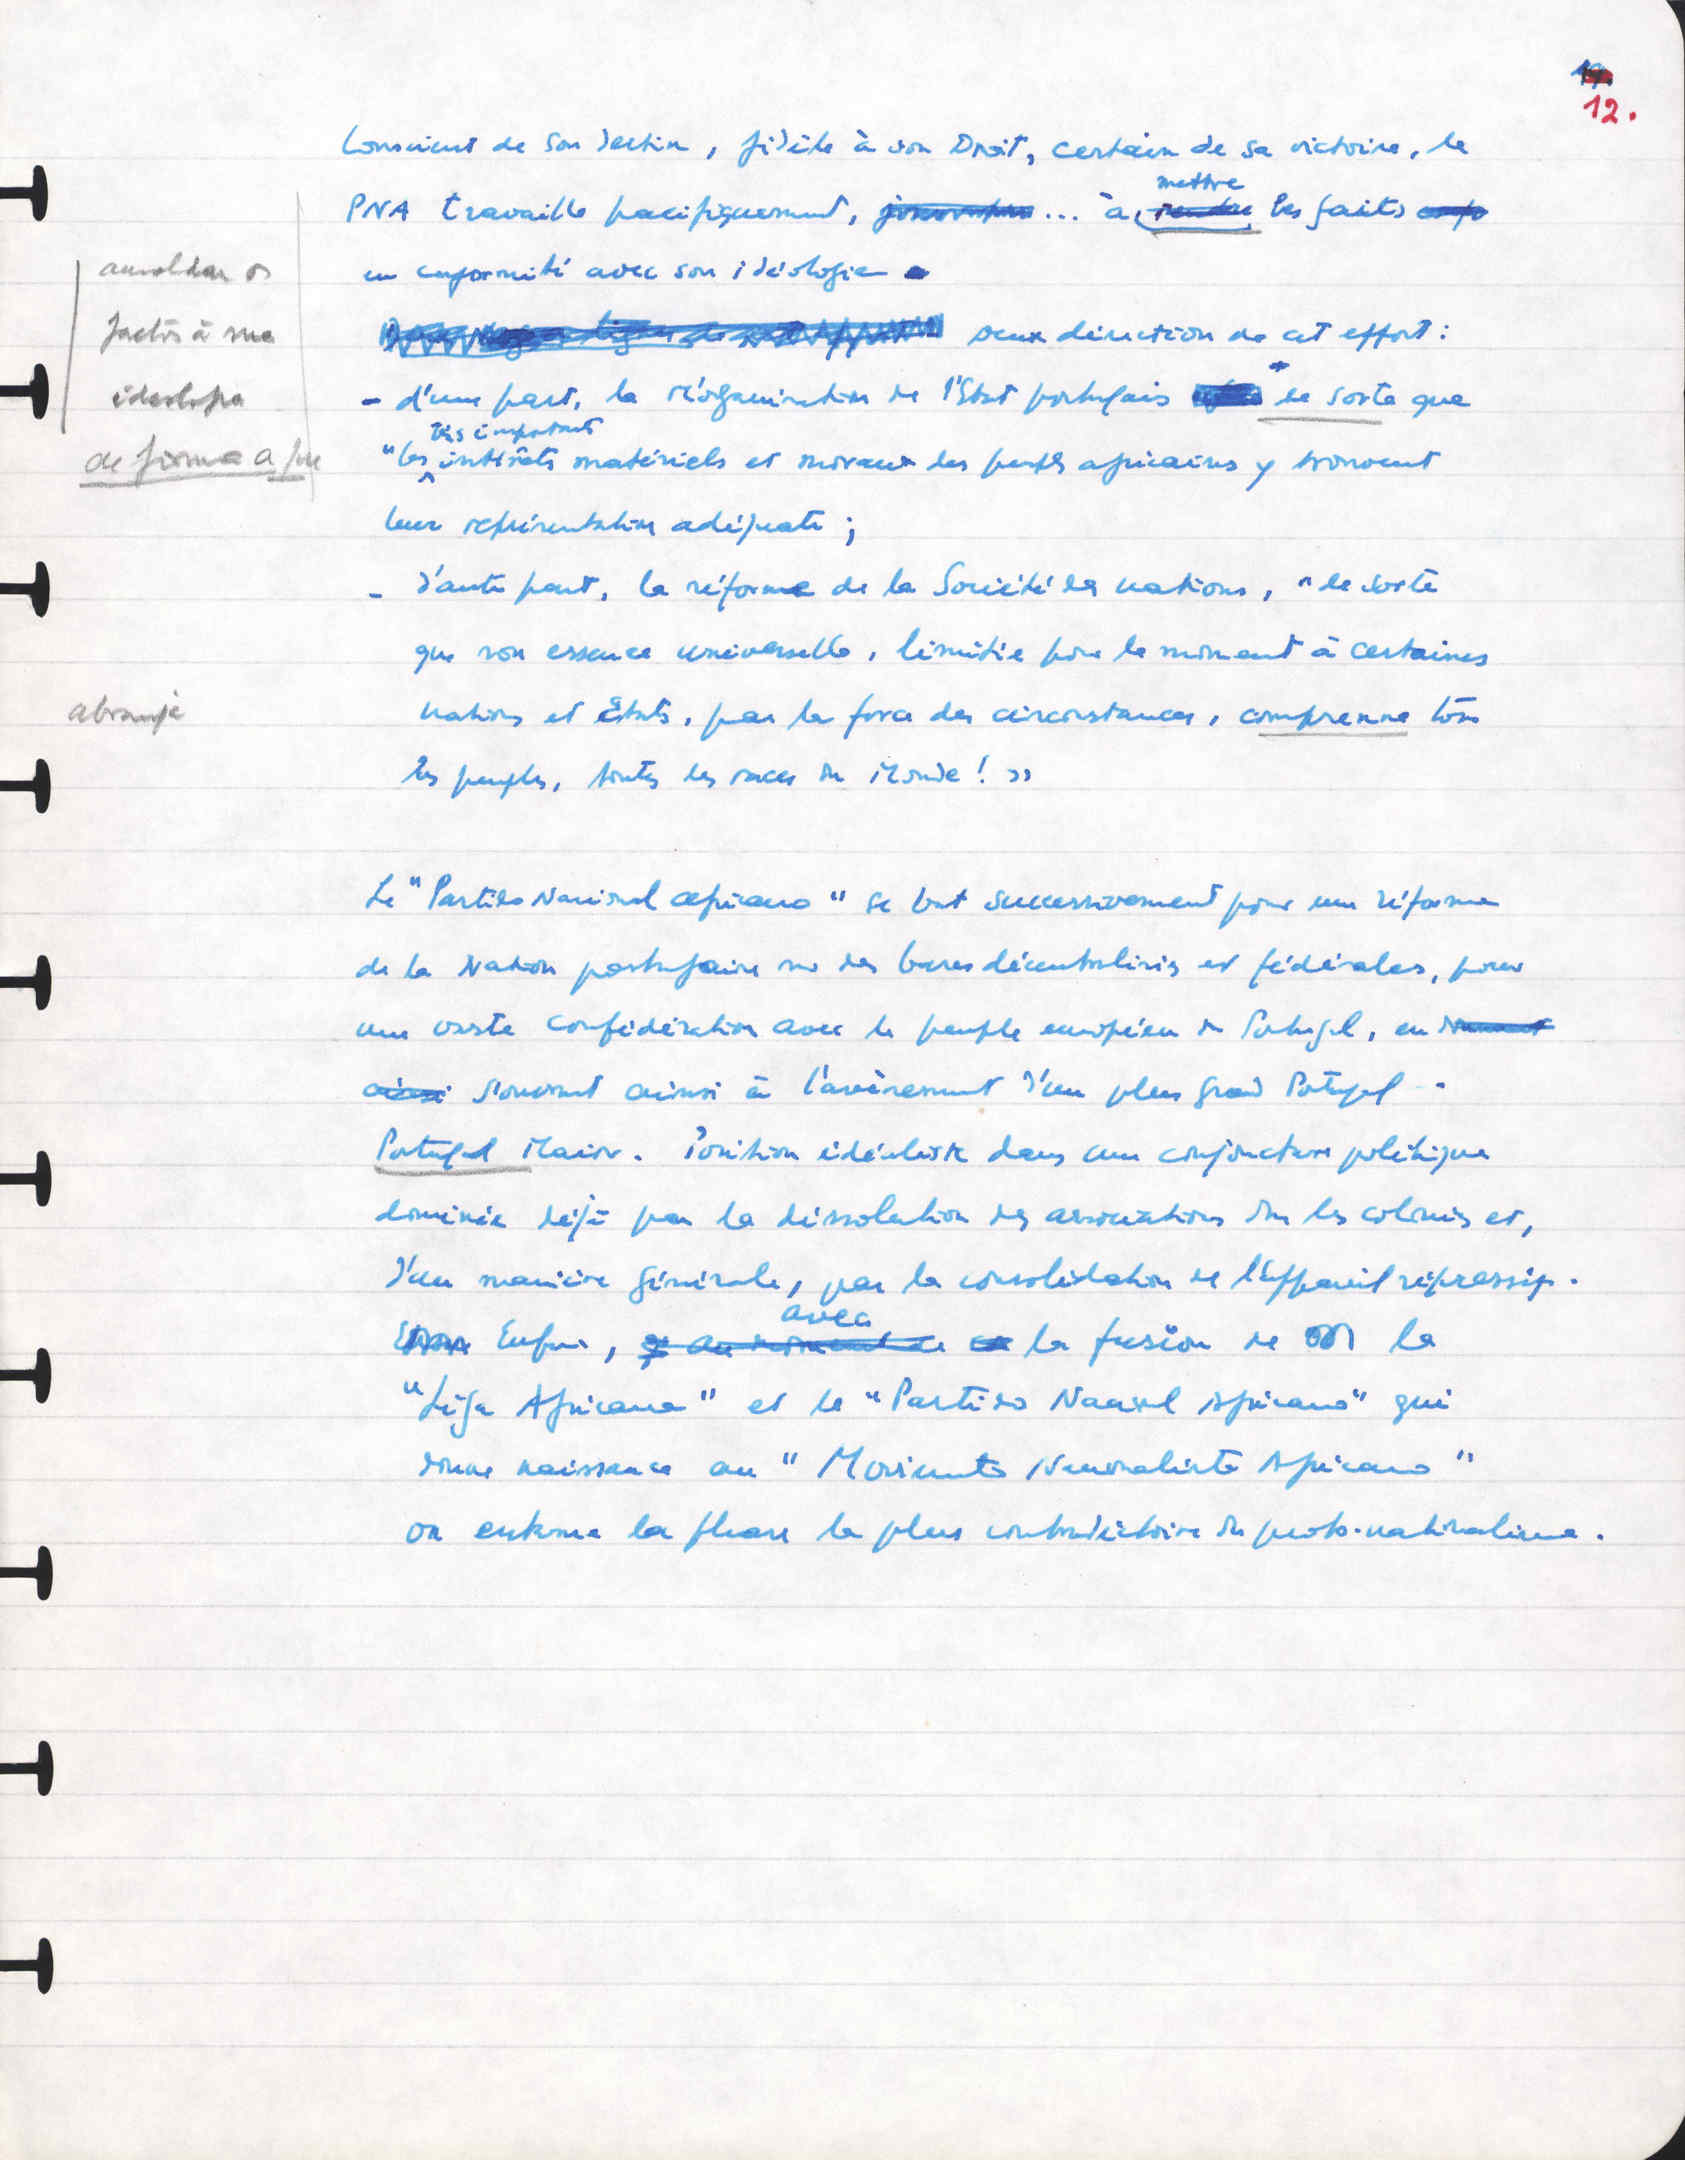 12.
Conscient de son destin, fidèle à son Droit, certain de sa victoire, le
mettre
PNA travaille pacifiquement, ... à rendre les faits
en conformité avec son idéologie
amoldar os
factos à sua
ideologia
de forma a que
Deux direction de cet effort :
- d'une part, la réorganisation de l'Etat portugais de sorte que
très importants
"les intérêts matériels et moraux des peuples africains y trouvent
leur représentation adéquate ;
- d'autre part, la réforme de la Société des Nations, "de sorte
que son essence universelle, limitée pour le moment à certaines
abranja
nations et Etats, par la force des circonstances, comprenne tous
les peuples, toutes les races du Monde ! »
Le "Partido Nacional Africano" se bat successivement pour une réforme
de la Nation portugaise sur des bases décentralisées et fédérales, pour
une vaste confédération avec le peuple européen du Portugal, en
ainsi s'ouvrant ainsi à l'avènement d'un plus grand Portugal -
Portugal Maior. Position idéaliste dans une conjoncture politique
dominée déjà par la dissolution des associations dans les colonies et,
d'une manière générale, par la consolidation de l'appareil répressif.
avec
Enfin, au moment de la fusion de la
"Liga Africana" et le "Partido Nacional Africano" qui
donne naissance au "Movimento Nacionalista Africano"
on entame la phase la plus contradictoire du proto-nationalisme.